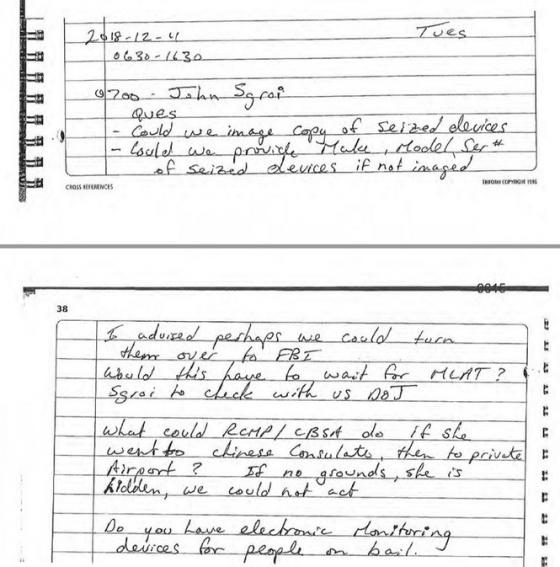 2018-12-4 Tues
0630-1630
0700 - John Sgroi
Ques
- Could we image copy of seized devices
- Could we provide Make, Model, Ser #
of seized devices if not imaged
CROSS REFERENCES TRIFORM COPYRIGHT 1996
0015
38
I advised perhaps we could turn
them over to FBI
Would this have to wait for MLAT?
Sgroi to check with US DOJ
What could RCMP/CBSA do if she
went to Chinese Consulate, then to private
Airport? If no grounds, she is
hidden, we could not act
Do you have electronic Monitoring
devices for people on bail.